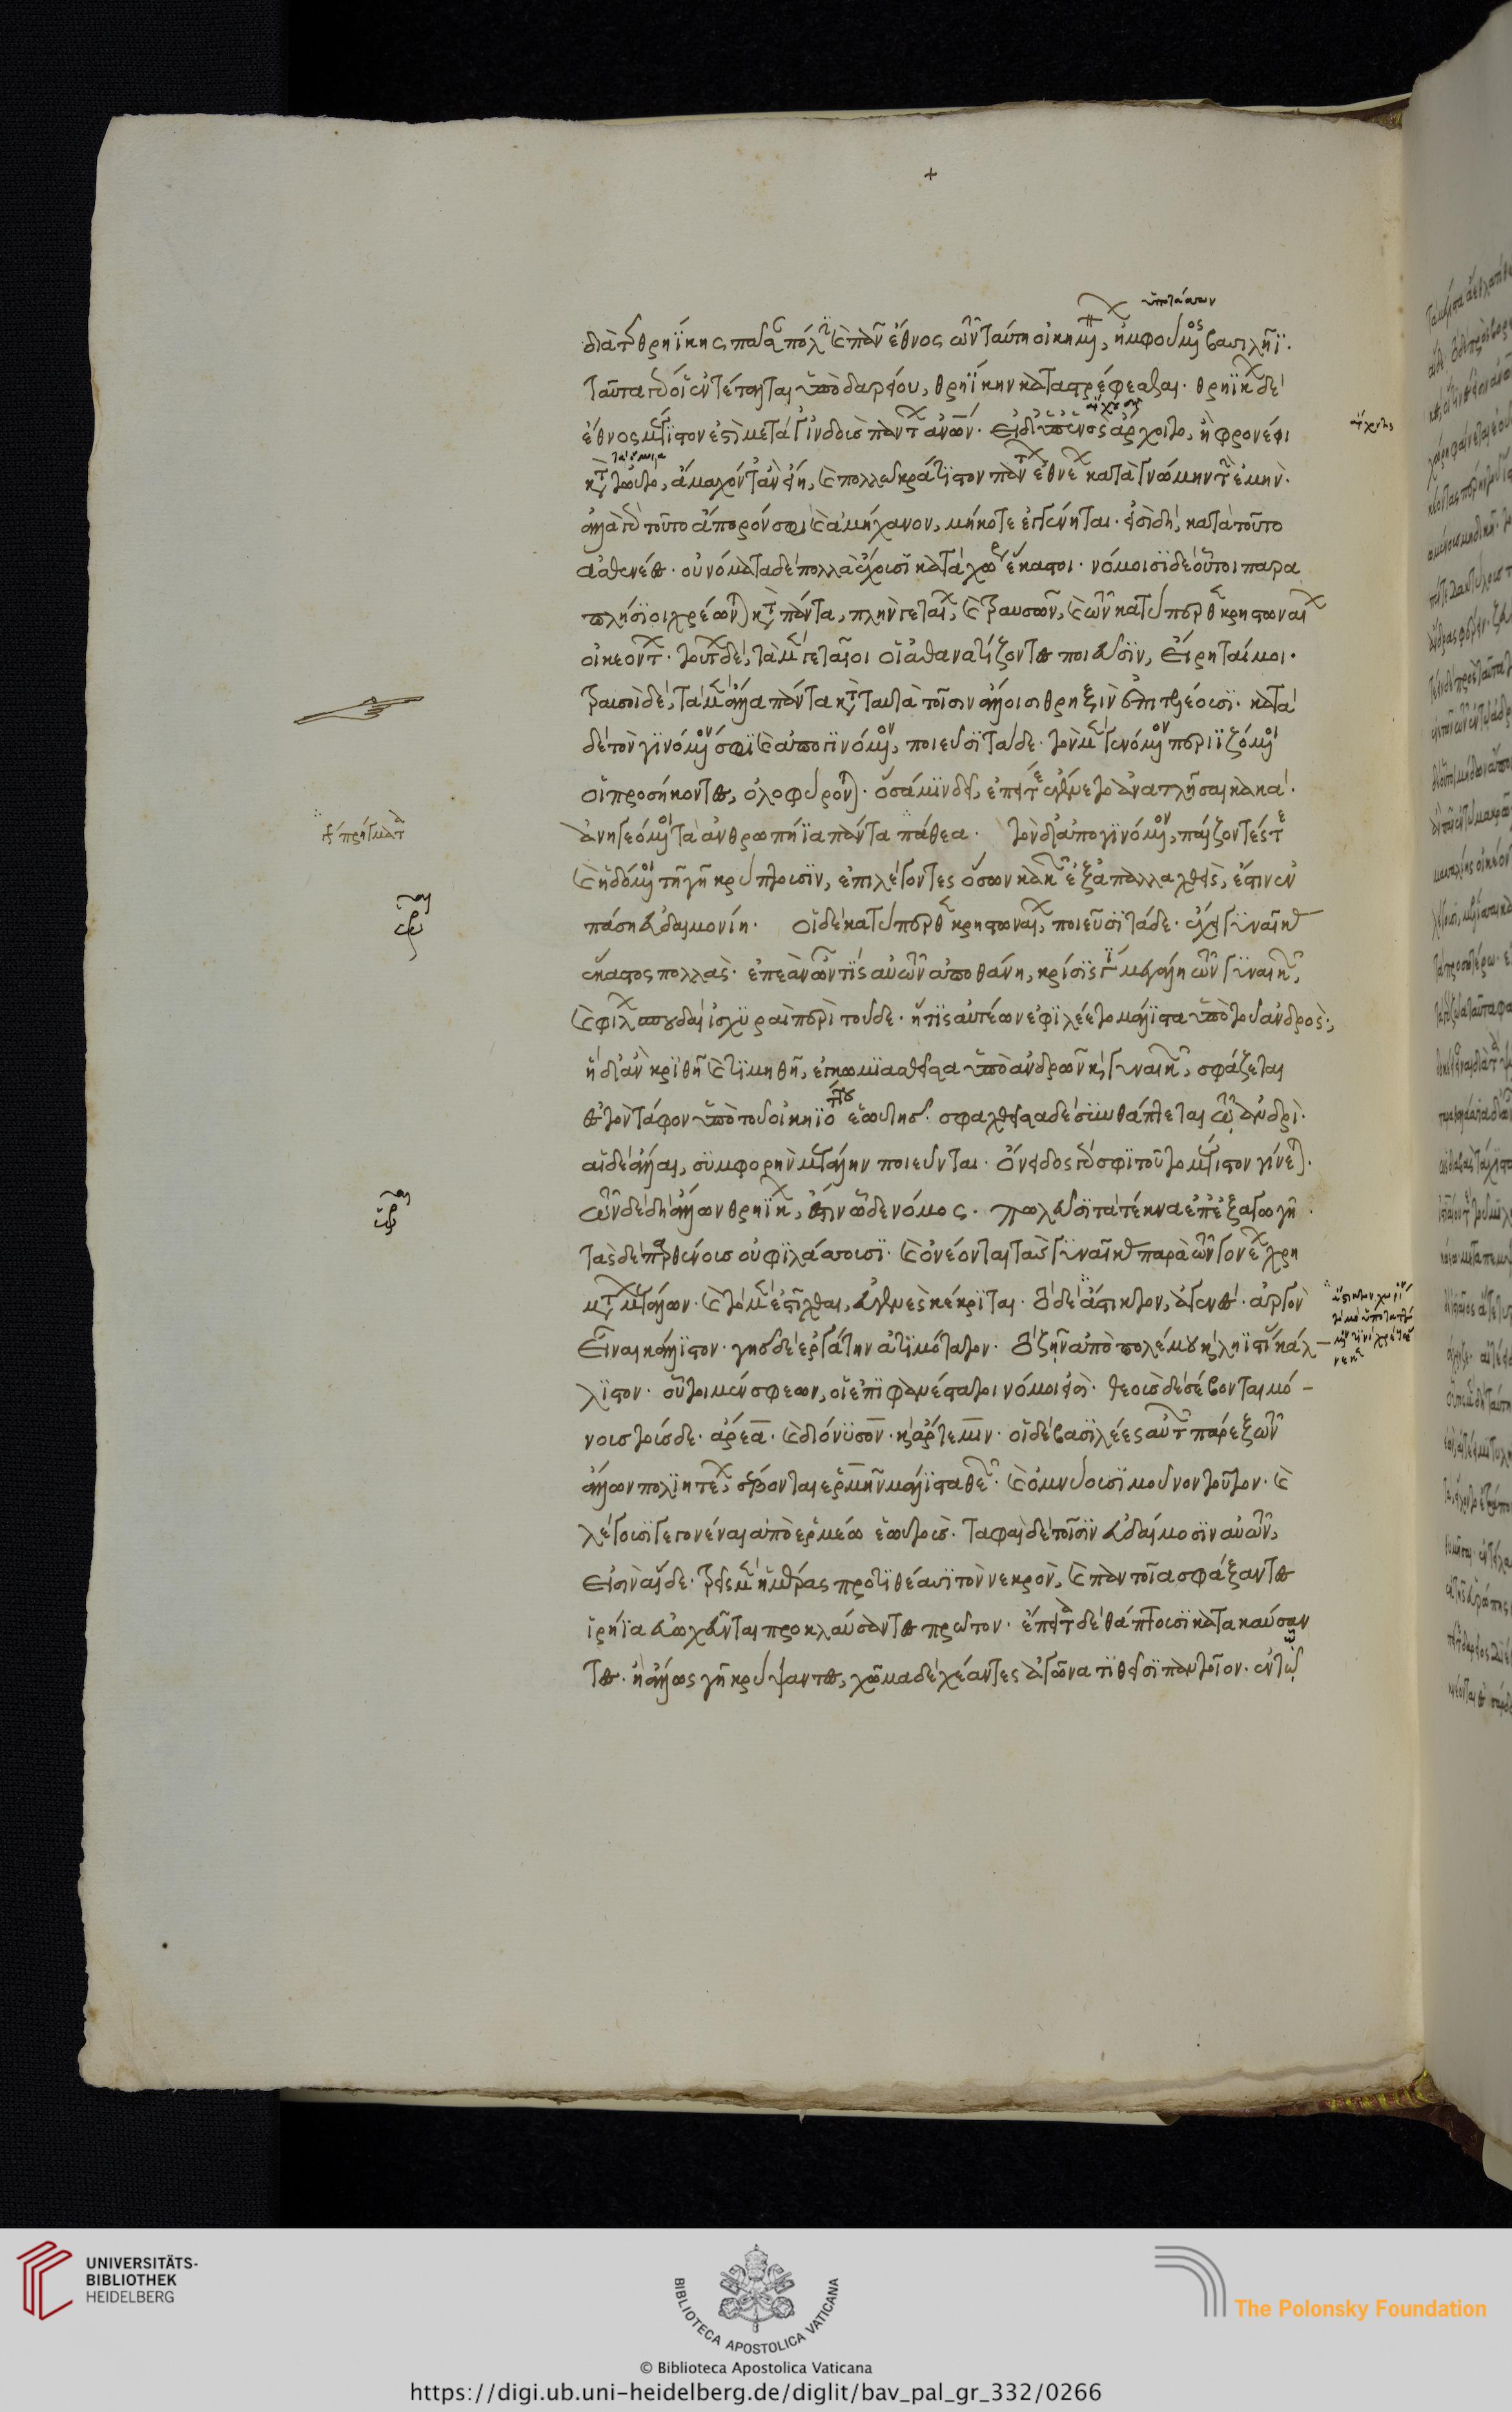 +
ὑποτάσσων
διὰ τῆς θρηΐκης πᾶσαν πόλιν καὶ πᾶν ἔθνος τῶν ταύτη οἰκημένων, ἡμερούμενος βασιλῆϊ.
ταῦτα γάρ οἱ ἐντέταλται ὑπὸ δαρείου, θρηΐκην καταστρέφεσθαι. θρηΐκων δὲ
ἔθνος μέγιστον ἐστὶ μετά γε ἰνδοὺς πάντων ἀνθρώπων. εἰ δὲ ὑπ' ἑνὸς ἄρχοιτο, ἢ φρονέει
κατὰ τὠυτό, ἄμαχόν τ' ἂν εἴη, καὶ πολλῷ κράτιστον πάντων ἐθνέων κατὰ γνώμην τὴν ἐμήν.
ἀλλὰ γὰρ τοῦτο ἄπορόν σφι καὶ ἀμήχανον, μήκοτε ἐγγένηται. εἰσὶ δὴ, κατὰ τοῦτο
ἀσθενέες. οὐνόματα δὲ πολλὰ ἔχουσι κατὰ χώρας ἕκαστοι. νόμοισι δὲ οὗτοι παρα
πλησίοισι χρέωνται κατὰ πάντα, πλὴν γεταίων, καὶ τραυσῶν, καὶ τῶν κατύπερθεν κρηστωναίων
οἰκεόντων. τουτέων δὲ, τὰ μὲν γεταῖοι οἱ ἀθανατίζοντες ποιεῦσιν, εἴρηταί μοι.
τραυσοὶ δὲ, τὰ μὲν ἄλλα πάντα κατὰ ταυτὰ τοῖσιν ἄλλοισι θρηξὶν ἐπιτελέουσι. κατὰ
δὲ τὸν γινόμενόν σφι καὶ ἀπογινόμενον, ποιεῦσι τάδε. τὸν μὲν γενόμενον περιϊζόμενοι
οἱ προσήκοντες, ὀλοφύρονται. ὅσα μιν δεῖ, ἐπεί τε ἐγένετο ἀναπλῆσαι κακά.
ἀνηγεόμενοι τὰ ἀνθρωπήϊα πάντα πάθεα. τὸν δ' ἀπογινόμενον, παίζοντές τε
καὶ ἡδόμενοι τῆ γῆ κρύπτουσιν, ἐπιλέγοντες ὅσων κακῶν ἐξαπαλλαχθεὶς, ἔστιν ἐν
πάση εὐδαιμονίη. οἱ δὲ κατύπερθεν κρηστωναίων, ποιεῦσι τάδε. ἔχει γυναῖκας
ἕκαστος πολλάς. ἐπεὰν ὦν τις αὐτῶν ἀποθάνη, κρίσις γίνεται μεγάλη τῶν γυναικῶν,
καὶ φίλων σπουδαὶ ἰσχυραὶ περὶ τοῦδε. ἥτις αὐτέων ἐφιλέετο μάλιστα ὑπὸ τοῦ ἀνδρός.
ἣ δ' ἂν κριθῆ καὶ τιμηθῆ, ἐγκωμιασθεῖσα ὑπὸ ἀνδρῶν καὶ γυναικῶν, σφάζεται
ἐς τὸν τάφον ὑπὸ τοῦ οἰκηϊοτάτου ἑωυτῆς. σφαχθεῖσα δὲ συνθάπτεται τῶ ἀνδρί.
αἱ δὲ ἄλλαι, συμφορὴν μεγάλην ποιεῦνται. ὄνειδος γάρ σφι τοῦτο μέγιστον γίνεται.
τῶν δὲ δὴ ἄλλων θρηΐκων, ἐστὶν ὅδε νόμος. πωλεῦσι τὰ τέκνα ἐπ' ἐξαγωγῆ.
τὰς δὲ παρθένους οὐ φυλάσσουσι. καὶ ὠνέονται τὰς γυναῖκας παρὰ τῶν γονέων χρη
μάτων μεγάλων. καὶ τὸ μὲν ἐστίχθαι, εὐγενὲς κέκριται. τὸ δὲ ἄστικτον, ἀγεννές. ἀργὸν
εἶναι κάλλιστον. γῆς δὲ ἐργάτην ἀτιμότατον. τὸ ζῆν ἀπὸ πολέμου καὶ ληϊστύος κάλ-
λιστον. οὗτοι μέν σφεων, οἱ ἐπιφανέστατοι νόμοι εἰσί. θεοὺς δὲ σέβονται μού-
νους τούσδε. ἄρεα. καὶ διόνυσον. καὶ ἄρτεμιν. οἱ δὲ βασιλέες αὐτῶν πάρεξ τῶν
ἄλλων πολιητέων, σέβονται ἑρμῆν μάλιστα θεῶν. καὶ ὀμνύουσι μοῦνον τοῦτον. καὶ
λέγουσι γεγονέναι ἀπὸ ἑρμέω ἑωυτούς. ταφαὶ δὲ τοῖσιν εὐδαίμοσιν αὐτῶν,
εἰσὶν αἵδε. τρεῖς μὲν ἡμέρας προτιθέασι τὸν νεκρὸν, καὶ παντοῖα σφάξαντες
ἱρήϊα εὐωχεῦνται προκλαύσαντες πρῶτον. ἔπειτα δὲ θάπτουσι κατακαύσαν
τες. ἢ ἄλλως γῆ κρύψαντες, χῶμα δὲ χέαντες ἀγῶνα τιθεῖσι παντοῖον. ἐν τῷ
UNIVERSITÄTS-
BIBLIOTHEK
HEIDELBERG
BIBLIOTECA APOSTOLICA VATICANA
The Polonsky Foundation
© Biblioteca Apostolica Vaticana
https://digi.ub.uni-heidelberg.de/diglit/bav_pal_gr_332/0266